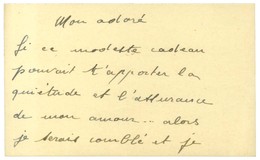 Mon adoré
Si ce modeste cadeau
pouvait t'apporter la
quiétude et l'assurance
de mon amour... alors
je serais comblé et je